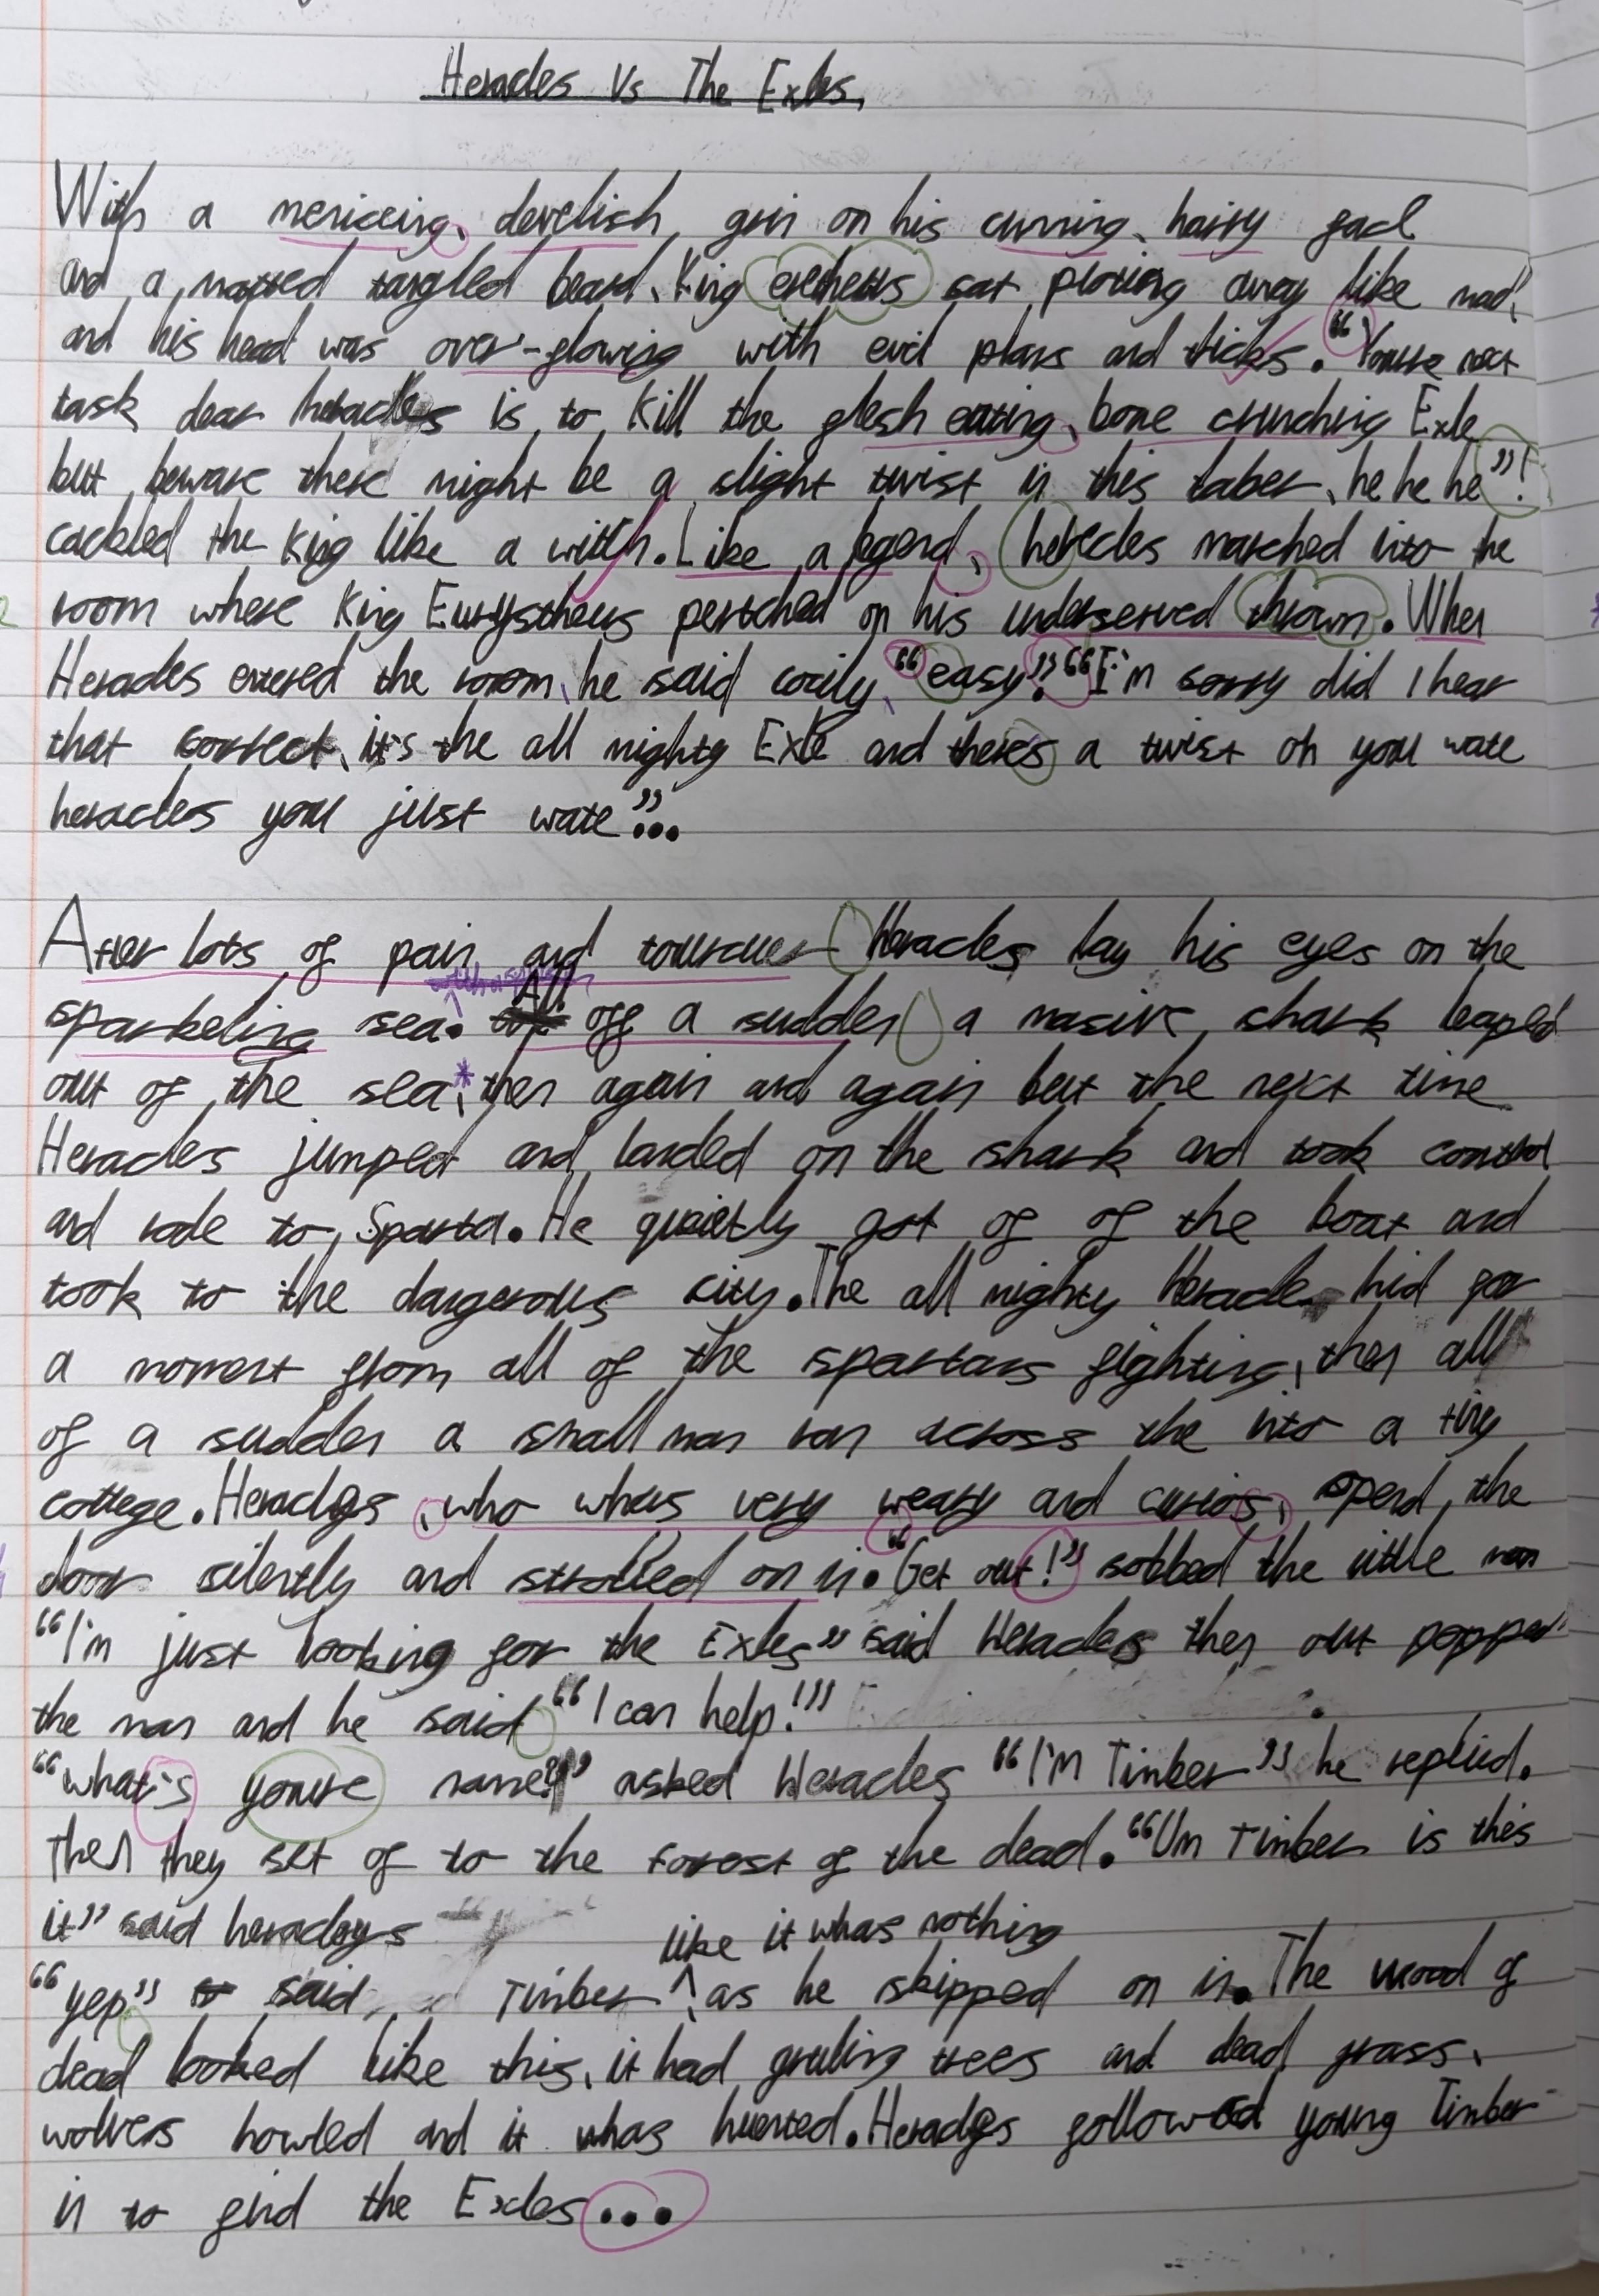 Heracles Vs The Exles.
With a meniceing, develish grin on his cunning, hairy face
and a matted tangled beard, King eretheus sat ploting away like mad,
and his head was over-flowing with evil plans and ticks. "Youre next
task dear heracles is to kill the flesh eating, bone crunching Exle
but beware there might be a slight twist in this laber, he he he"!
cackled the King like a witch. Like a legend, heracles marched into the
room where King Eurystheus pertched on his underserved thrown. When
Heracles entered the room, he said coily, "easy". "I'm sorry did I hear
that correct, it's the all mighty Exle and there's a twist oh you wate
heracles you just wate"...
After lots of pain and tourcuer Heracles lay his eyes on the
sparkeling sea. All off a sudden a masive shark leaped
out of the sea, then again and again but the next time
Heracles jumped and landed on the shark and took control
and rode to Sparta. He quietly got of of the boat and
took to the dangerous city. The all mighty Heracles hid for
a moment from all of the spartans fighting, then all
of a sudden a small man ran across the into a tiny
cottege. Heracles, who whas very weary and curios, opend the
door silently and strolled on in. "Get out!" sobbed the little man
"I'm just looking for the Exles" said Heracles then out popped
the man and he said "I can help!"
"what's youre name?" asked Heracles "I'm Timber" he replied.
Then they set of to the forest of the dead. "Um Timber is this
it" said heracles
like it whas nothing
"yep" said Timber ^ as he skipped on in. The wood of
dead looked like this, it had gruling trees and dead grass,
wolvers howled and it whas huented. Heracles followed young Timber
in to find the Excles...